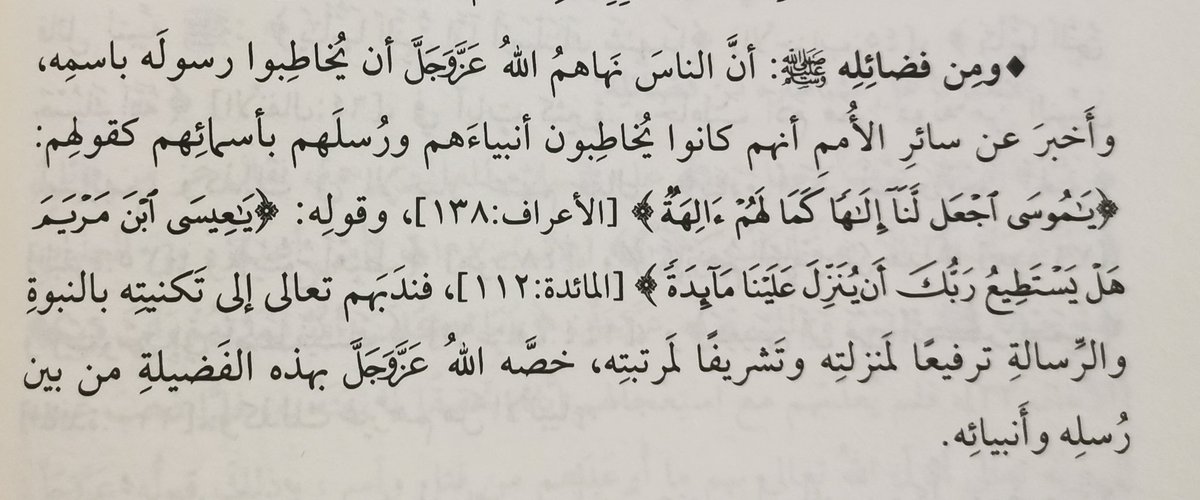 ♦ ومِن فضائِلِه ﷺ: أنَّ الناسَ نَهاهمُ اللهُ عَزَّوَجَلَّ أن يُخاطِبوا رسولَه باسمِه،
وأَخبرَ عن سائرِ الأُممِ أنهم كانوا يُخاطِبون أنبياءَهم ورُسلَهم بأسمائِهم كقولهِم:
﴿يَٰمُوسَى ٱجۡعَل لَّنَآ إِلَٰهٗا كَمَا لَهُمۡ ءَالِهَةٞ﴾ [الأعراف:١٣٨]، وقولِه: ﴿يَٰعِيسَى ٱبۡنَ مَرۡيَمَ
هَلۡ يَسۡتَطِيعُ رَبُّكَ أَن يُنَزِّلَ عَلَيۡنَا مَآئِدَةٗ﴾ [المائدة:١١٢]، فندَبَهم تعالى إلى تَكنيتِه بالنبوةِ
والرِّسالةِ ترفيعًا لمَنزلتِه وتَشريفًا لمَرتبتِه، خصَّه اللهُ عَزَّوَجَلَّ بهذه الفَضيلةِ من بين
رُسلِه وأَنبيائِه.